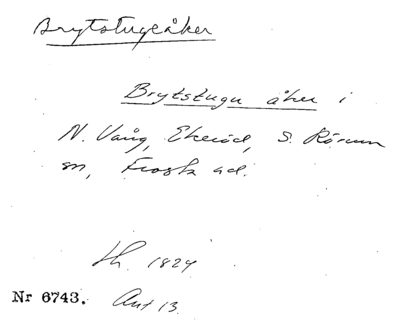 Brytstugeåker
Brytstugu åker i
N. Vång, Ekeröd, S. Rörum
sn, Frosta hd.
Lh. 1824
Nr 6743. Avt 13.